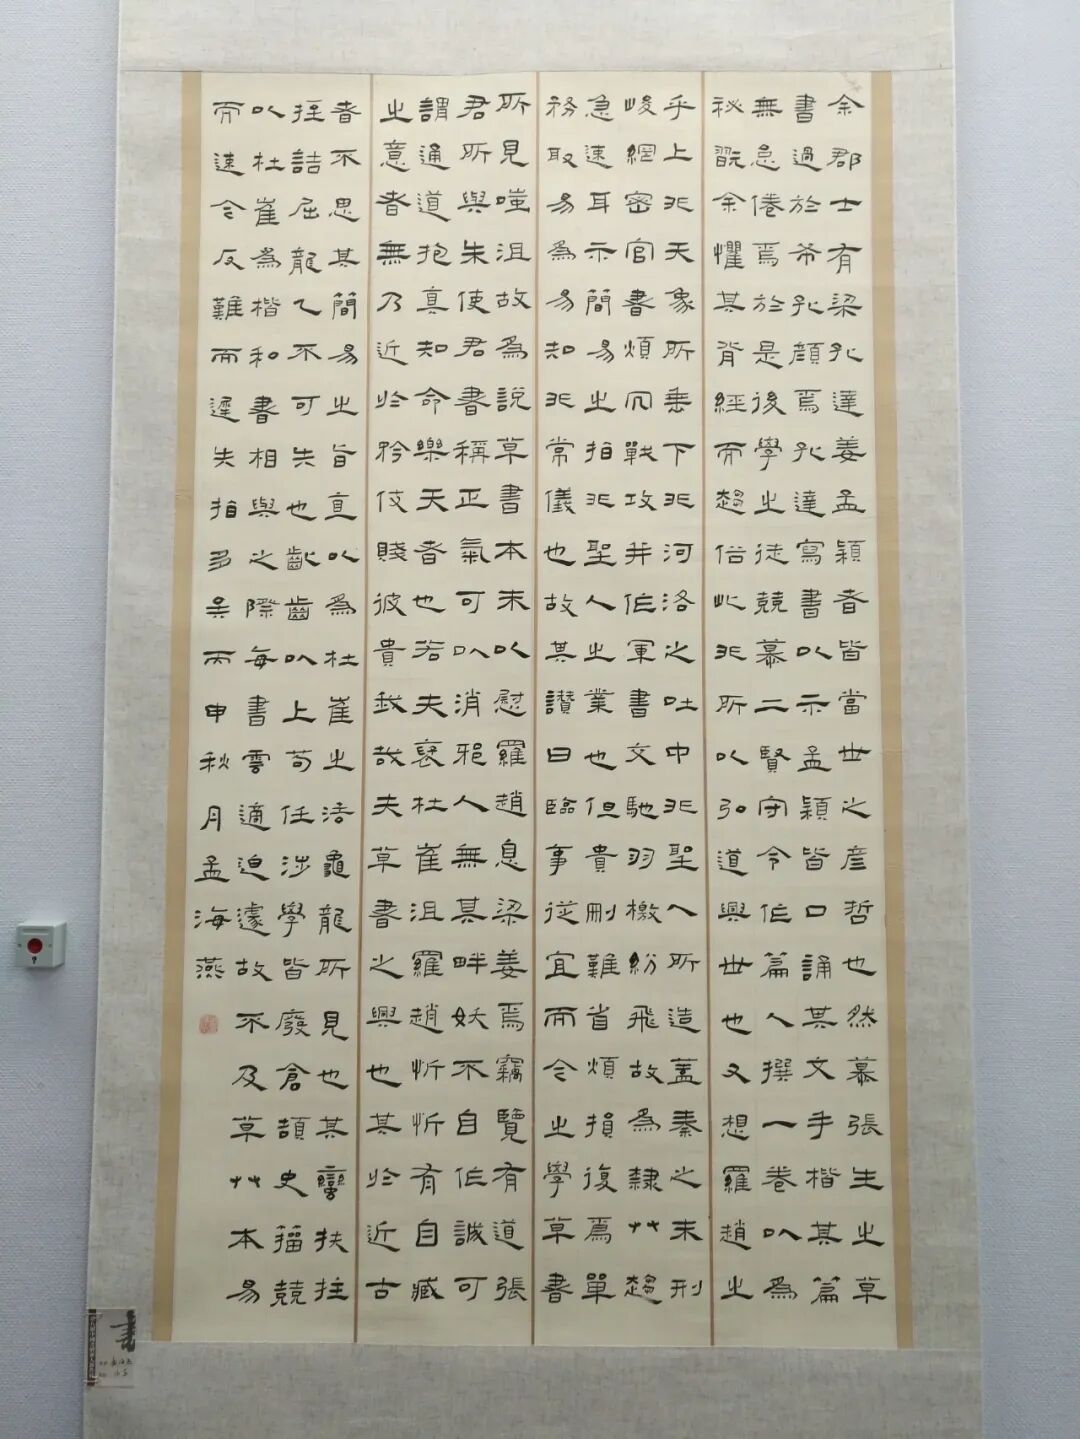 余郡士有梁孔達姜孟穎者皆當世之彥哲也然慕張生之草
書過於希孔顏焉孔達寫書以示孟穎皆口誦其文手楷其篇
無怠倦焉於是後學之徒競慕二賢守令作篇人撰一卷以為
秘翫余懼其背經而趨俗此非所以弘道興世也又想羅趙之
乎上非天象所垂下非河洛之吐中非聖人所造蓋秦之末刑
峻網密官書煩冗戰攻并作軍書交馳羽檄紛飛故為隸艸趨
急速耳示簡易之指非聖人之業也但貴刪難省煩損復焉單
務取易為易知非常儀也故其讃曰臨事從宜而今之學草書
所見嗤沮故為說草書本末以慰羅趙息梁姜焉竊覽有道張
君所與朱使君書稱正氣可以消邪人無其畔妖不自作誠可
謂通道抱真知命樂天者也若夫褒杜崔沮羅趙忻忻有自臧
之意者無乃近於矜伎賤彼貴我哉夫草書之興也其於近古
者不思其簡易之旨直以為杜崔之法龜龍所見也其蠻扶拄
挃詰屈龍乙不可失也齔齒以上苟任涉學皆廢倉頡史籀競
以杜崔為楷和書相與之際每書雲適迫遽故不及草艸本易
而速今反難而遲失指多矣丙申秋月孟海燕